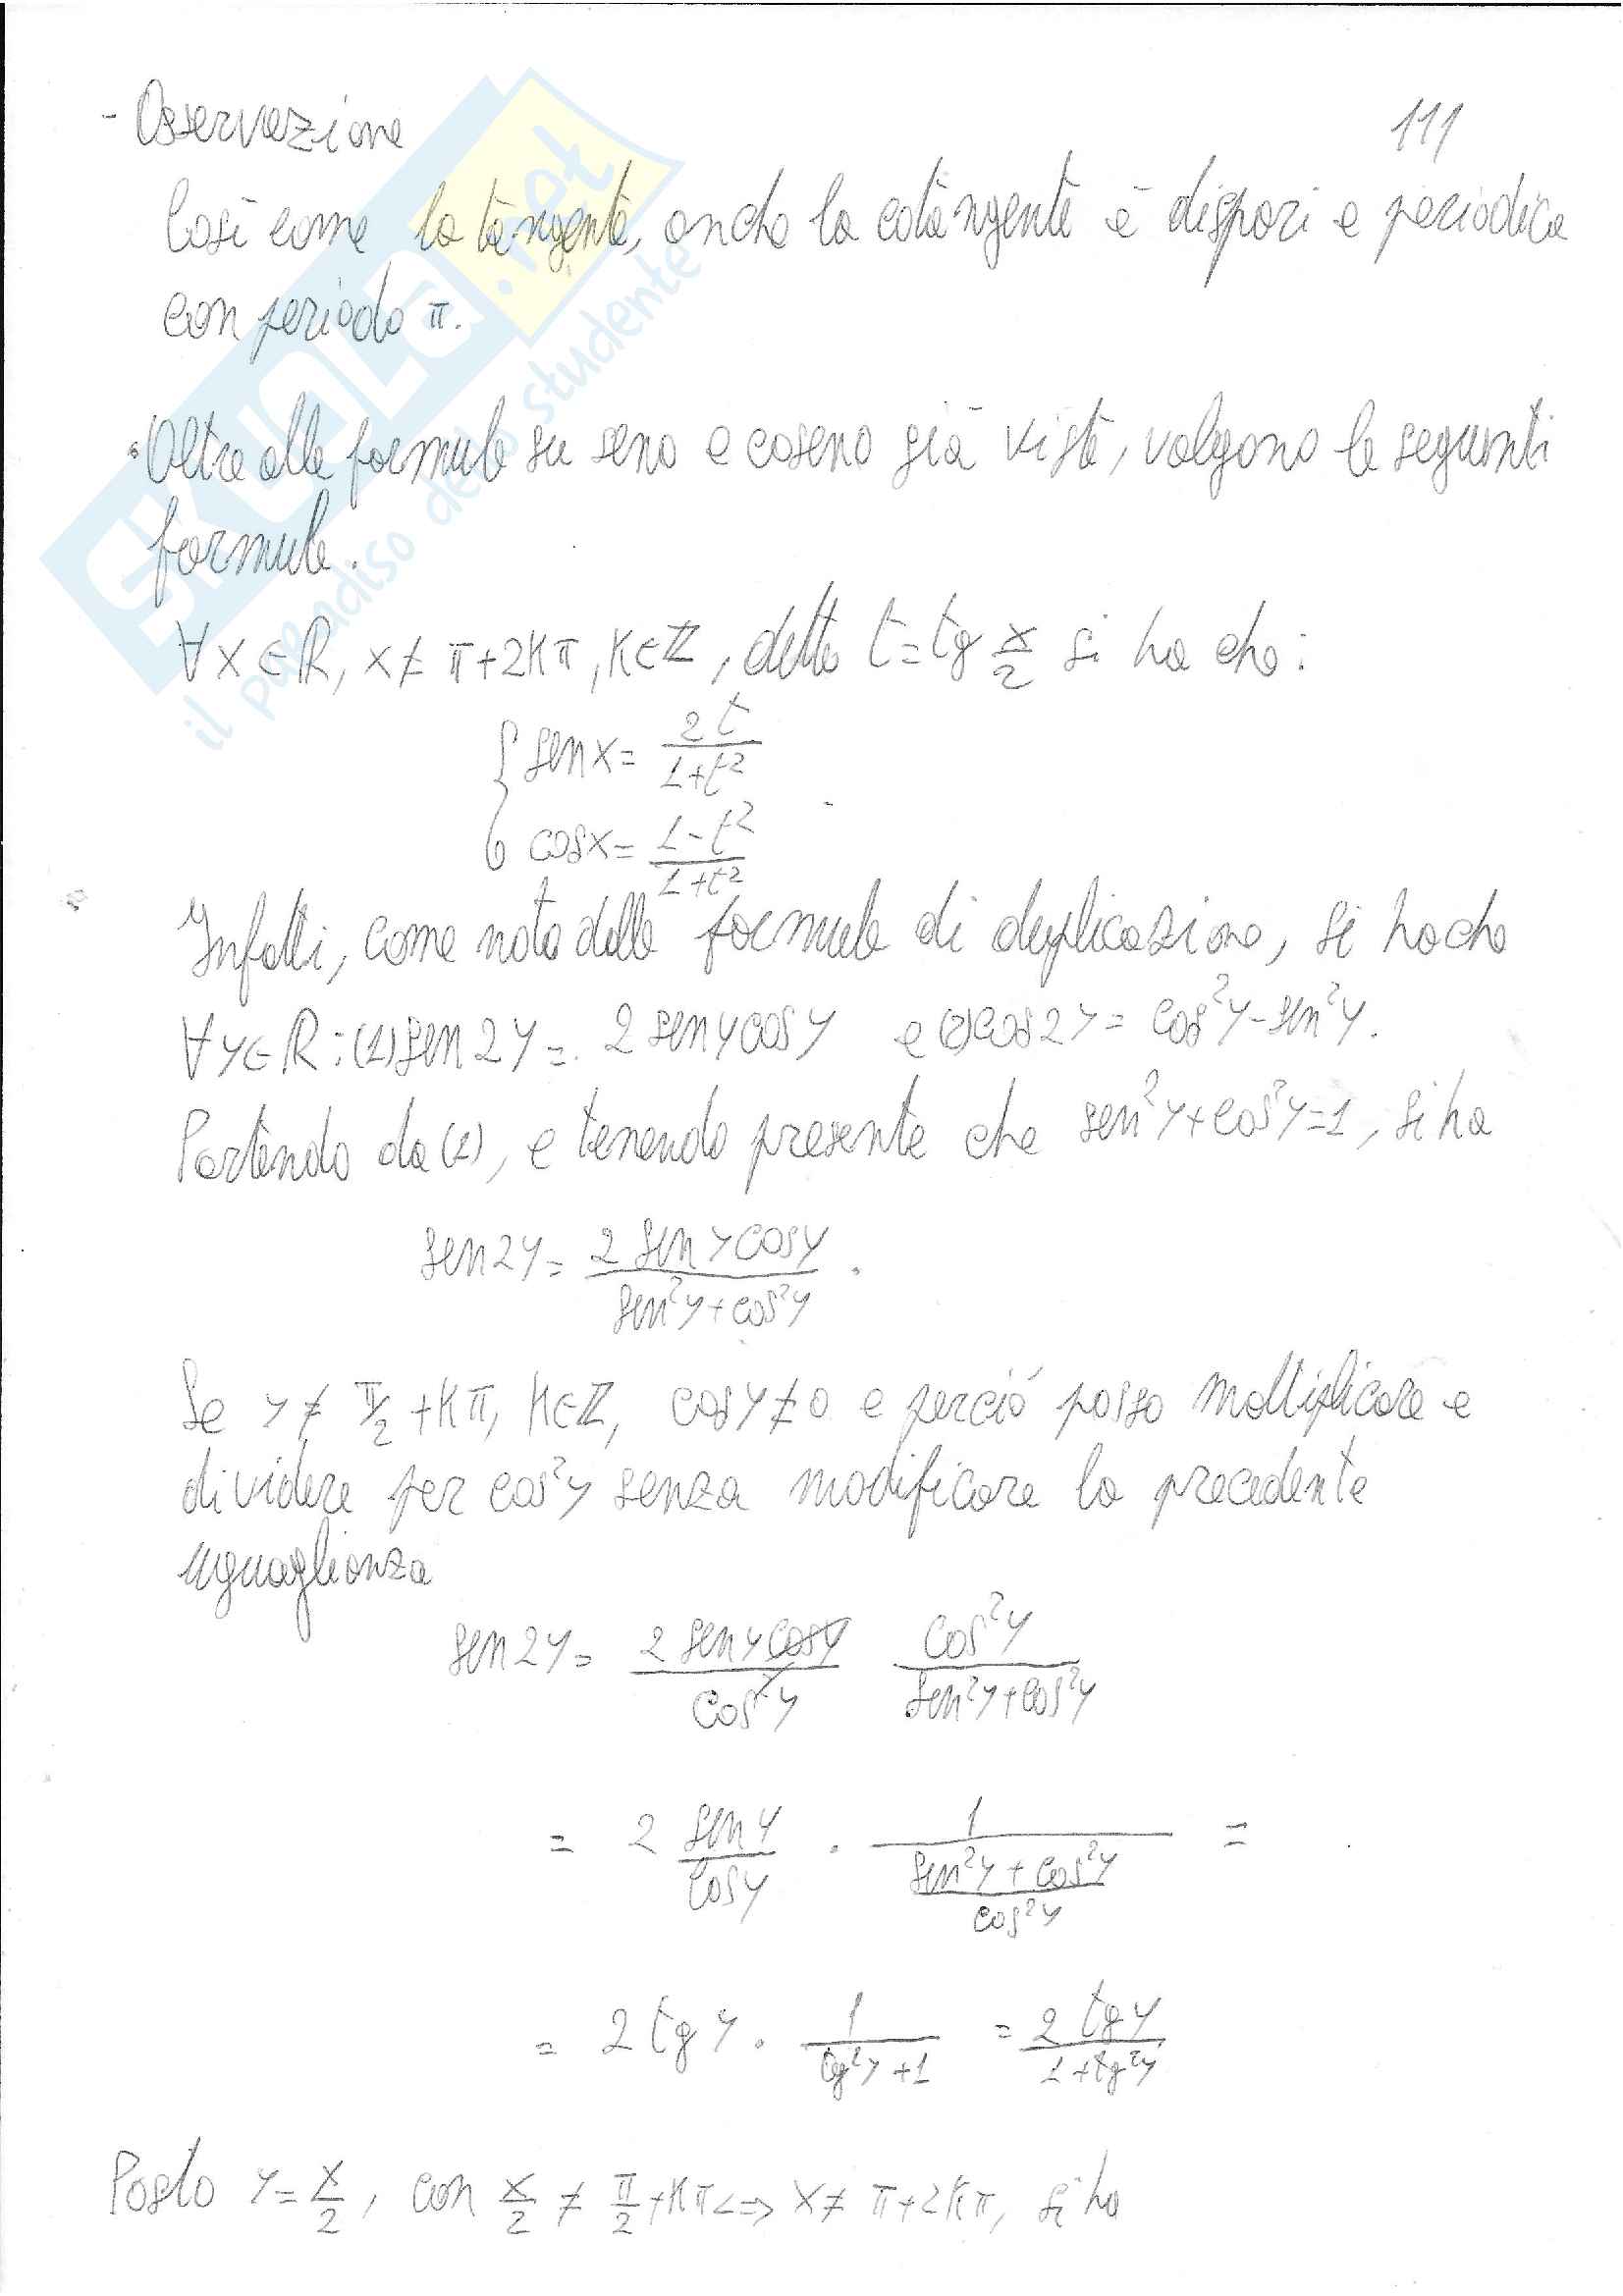 - Osservazione
111
Così come la tangente, anche la cotangente è dispari e periodica
con periodo π.
• Oltre alle formule su seno e coseno già viste, valgono le seguenti
formule.
∀x∈ℝ, x≠π+2kπ, k∈ℤ, detto t=tg x/2 si ha che:
{ senx = 2t/(1+t²)
cosx = (1-t²)/(1+t²)
Infatti, come noto dalle formule di duplicazione, si ha che
∀y∈ℝ: (1) sen2y = 2senycosy e (2) cos2y = cos²y-sen²y.
Partendo da (1), e tenendo presente che sen²y+cos²y=1, si ha
sen2y = 2senycosy/(sen²y+cos²y).
Se y≠π/2+kπ, k∈ℤ, cosy≠0 e perciò posso moltiplicare e
dividere per cos²y senza modificare la precedente
uguaglianza
sen2y = 2senycosy/cos²y cos²y/(sen²y+cos²y)
= 2 seny/cosy · 1/((sen²y+cos²y)/cos²y) =
= 2tgy · 1/(tg²y+1) = 2tgy/(1+tg²y)
Posto y=x/2, con x/2 ≠ π/2+kπ <=> x≠π+2kπ, si ha
SKUOLA.net
il paradiso dello studente